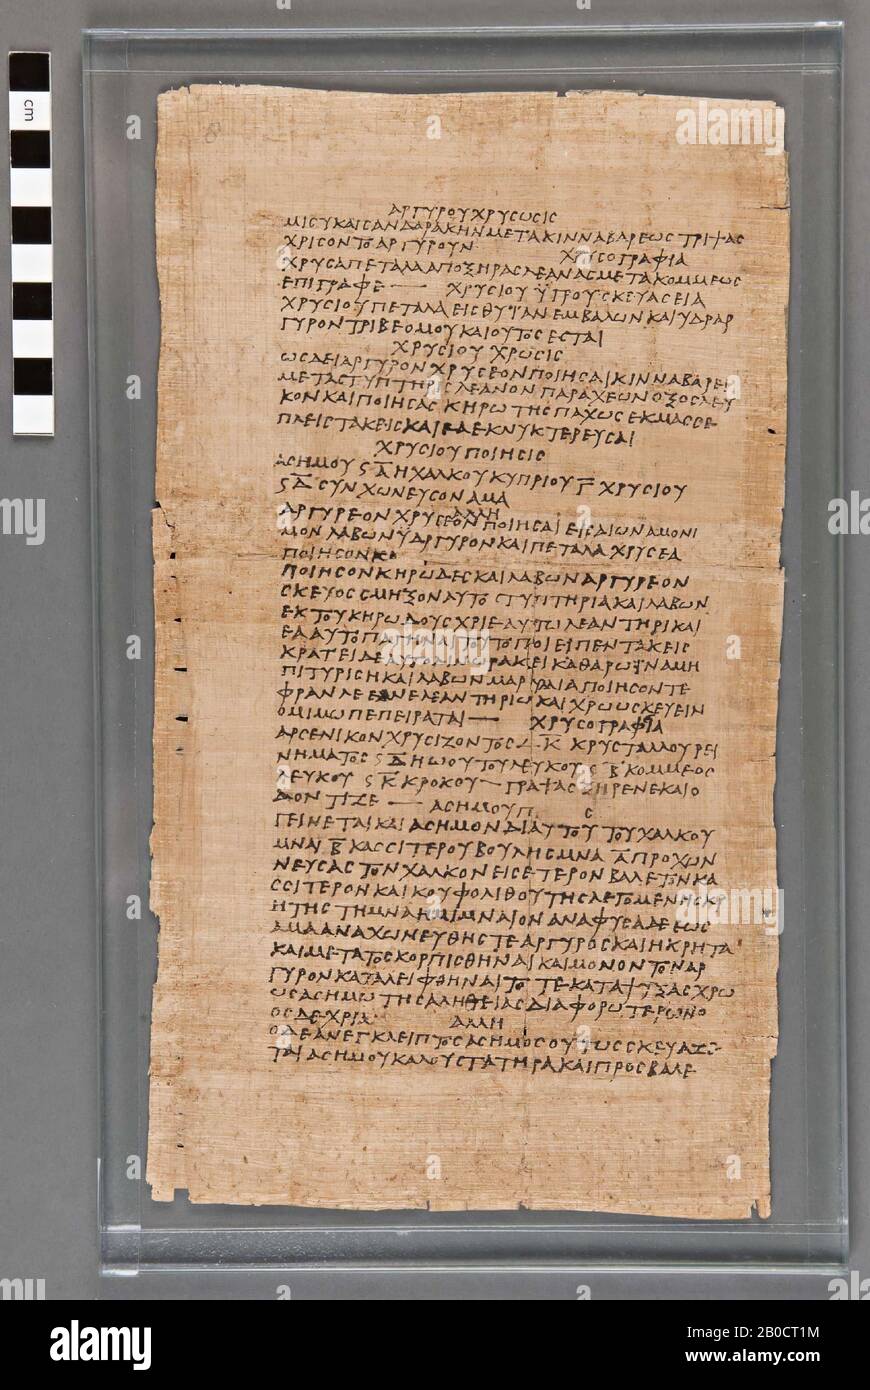 cm
ΑΡΓΥΡΟΥ ΧΡΥϹΩϹΙϹ
ΜΙϹΥ ΚΑΙ ϹΑΝΔΑΡΑΚΗΝ ΜΕΤΑ ΚΙΝΝΑΒΑΡΕΩϹ ΤΡΙΨΑϹ
ΧΡΙϹΟΝ ΤΟ ΑΡΓΥΡΟΥΝ
ΧΡΥϹΟΓΡΑΦΙΑ
ΧΡΥϹΑ ΠΕΤΑΛΑ ΑΠΟΞΗΡΑϹ ΛΕΑΝΑϹ ΜΕΤΑ ΚΟΜΜΕΩϹ
ΕΠΙΓΡΑΦΕ — ΧΡΥϹΙΟΥ ΫΓΡΟΥ ϹΚΕΥΑϹΕΙΑ
ΧΡΥϹΙΟΥ ΠΕΤΑΛΑ ΕΙϹ ΘΥΪΑΝ ΕΜΒΑΛΩΝ ΚΑΙ ΥΔΡΑΡ
ΓΥΡΟΝ ΤΡΙΒΕ ΟΜΟΥ ΚΑΙ ΟΥΤΟϹ ΕϹΤΑΙ
ΧΡΥϹΙΟΥ ΧΡΩϹΙϹ
ΩϹ ΔΕΙ ΑΡΓΥΡΟΝ ΧΡΥϹΕΟΝ ΠΟΙΗϹΑΙ ΚΙΝΝΑΒΑΡΕΙ
ΜΕΤΑ ϹΤΥΠΤΗΡΙϹ ΛΕΑΝΟΝ ΠΑΡΑΧΕΩΝ ΟΞΟϹ ΛΕΥ
ΚΟΝ ΚΑΙ ΠΟΙΗϹΑϹ ΚΗΡΩΤΗϹ ΠΑΧΩϹ ΕΚΜΑϹϹΕ
ΠΛΕΙϹΤΑΚΕΙϹ ΚΑΙ ΕΑ ΕΚΝΥΚΤΕΡΕΥϹΑΙ
ΧΡΥϹΙΟΥ ΠΟΙΗϹΙϹ
ΑϹΗΜΟΥ Ϛ Α Η ΧΑΛΚΟΥ ΚΥΠΡΙΟΥ Γ ΧΡΥϹΙΟΥ
Ϛ Δ ϹΥΝΧΩΝΕΥϹΟΝ ΑΜΑ
ΑΛΛΗ
ΑΡΓΥΡΕΟΝ ΧΡΥϹΕΟΝ ΠΟΙΗϹΑΙ ΕΙϹ ΑΙΩΝΑ ΜΟΝΙ
ΜΟΝ ΛΑΒΩΝ ΫΔΡΑΡΓΥΡΟΝ ΚΑΙ ΠΕΤΑΛΑ ΧΡΥϹΕΑ
ΠΟΙΗϹΟΝ
ΠΟΙΗϹΟΝ ΚΗΡΩΔΕϹ ΚΑΙ ΛΑΒΩΝ ΑΡΓΥΡΕΟΝ
ϹΚΕΥΟϹ ϹΜΗΞΟΝ ΑΥΤΟ ϹΤΥΠΤΗΡΙΑ ΚΑΙ ΛΑΒΩΝ
ΕΚ ΤΟΥ ΚΗΡΩΔΟΥϹ ΧΡΙΕ ΑΥΤΩ ΛΕΑΝΤΗΡΙ ΚΑΙ
ΕΑ ΑΥΤΟ ΠΑΓΗΝΑΙ ΤΟΥΤΟ ΠΟΙΕΙ ΠΕΝΤΑΚΕΙϹ
ΚΡΑΤΕΙ ΔΕ ΑΥΤΟ ΛΙΝΩ ΡΑΚΕΙ ΚΑΘΑΡΩ ΪΝΑ ΜΗ
ΠΙΤΥΡΙϹΗ ΚΑΙ ΛΑΒΩΝ ΜΑΡΥΛΙΑ ΠΟΙΗϹΟΝ ΤΕ
ΦΡΑΝ ΛΕΑΝΕ ΛΕΑΝΤΗΡΙΩ ΚΑΙ ΧΡΩ ΩϹ ΚΕΥΕΙΝ
ΟΜΙΜΩ ΠΕΠΕΙΡΑΤΑΙ — ΧΡΥϹΟΓΡΑΦΙΑ
ΑΡϹΕΝΙΚΟΝ ΧΡΥϹΙΖΟΝΤΟϹ Κ ΚΡΥϹΤΑΛΛΟΥ ΡΕΙ
ΝΗΜΑΤΟϹ Ϛ Δ Η ΩΙΟΥ ΤΟΥ ΛΕΥΚΟΥ Ϛ Β ΚΟΜΜΕΟϹ
ΛΕΥΚΟΥ Ϛ Κ ΚΡΟΚΟΥ — ΓΡΑΨΑϹ ΞΗΡΕΝΕ ΚΑΙ Ο
ΔΟΝΤΙΖΕ — ΑϹΗΜΟΥ Π Ϲ
ΓΕΙΝΕΤΑΙ ΚΑΙ ΑϹΗΜΟΝ ΔΙ ΑΥΤΟΥ ΤΟΥ ΧΑΛΚΟΥ
ΜΝΑΙ Β ΚΑϹϹΙΤΕΡΟΥ ΒΟΥΛΗϹ ΜΝΑ Α ΠΡΟΧΩΝ
ΝΕΥϹΑϹ ΤΟΝ ΧΑΛΚΟΝ ΕΙϹ ΕΤΕΡΟΝ ΒΑΛΕ ΤΟΝ ΚΑ
ϹϹΙΤΕΡΟΝ ΚΑΙ ΚΟΥΦΟΛΙΘΟΥ ΤΗϹ ΛΕΓΟΜΕΝΗϹ ΚΡ
ΗΤΗϹ ΤΗ ΜΝΑ ΗΜΙΜΝΑΙΟΝ ΑΝΑΦΥϹΑ ΔΕ ΕΩϹ
ΑΜΑ ΑΝΑΧΩΝΕΥΘΗϹΤΕ ΑΡΓΥΡΟϹ ΚΑΙ Η ΚΡΗΤΑ
ΚΑΙ ΜΕΤΑ ΤΟ ϹΚΟΡΠΙϹΘΗΝΑΙ ΚΑΙ ΜΟΝΟΝ ΤΟΝ ΑΡ
ΓΥΡΟΝ ΚΑΤΑΛΕΙΦΘΗΝΑΙ ΤΟΤΕ ΚΑΤΑΨΥΞΑϹ ΧΡΩ
ΩϹ ΑϹΗΜΩ ΤΗϹ ΑΛΗΘΕΙΑϹ ΔΙΑΦΟΡΩΤΕΡΩ
ΑΛΛΗ
Ο ΔΕ ΑΝΕΓΚΛΕΙΠΤΟϹ ΑϹΗΜΟϹ ΟΥΤΩϹ ϹΚΕΥΑΖΕ
ΤΑΙ ΑϹΗΜΟΥ ΚΑΛΟΥ ϹΤΑΤΗΡΑ ΚΑΙ ΠΡΟϹΒΑΛΕ
alamy
Image ID: 2B0CT1M
www.alamy.com